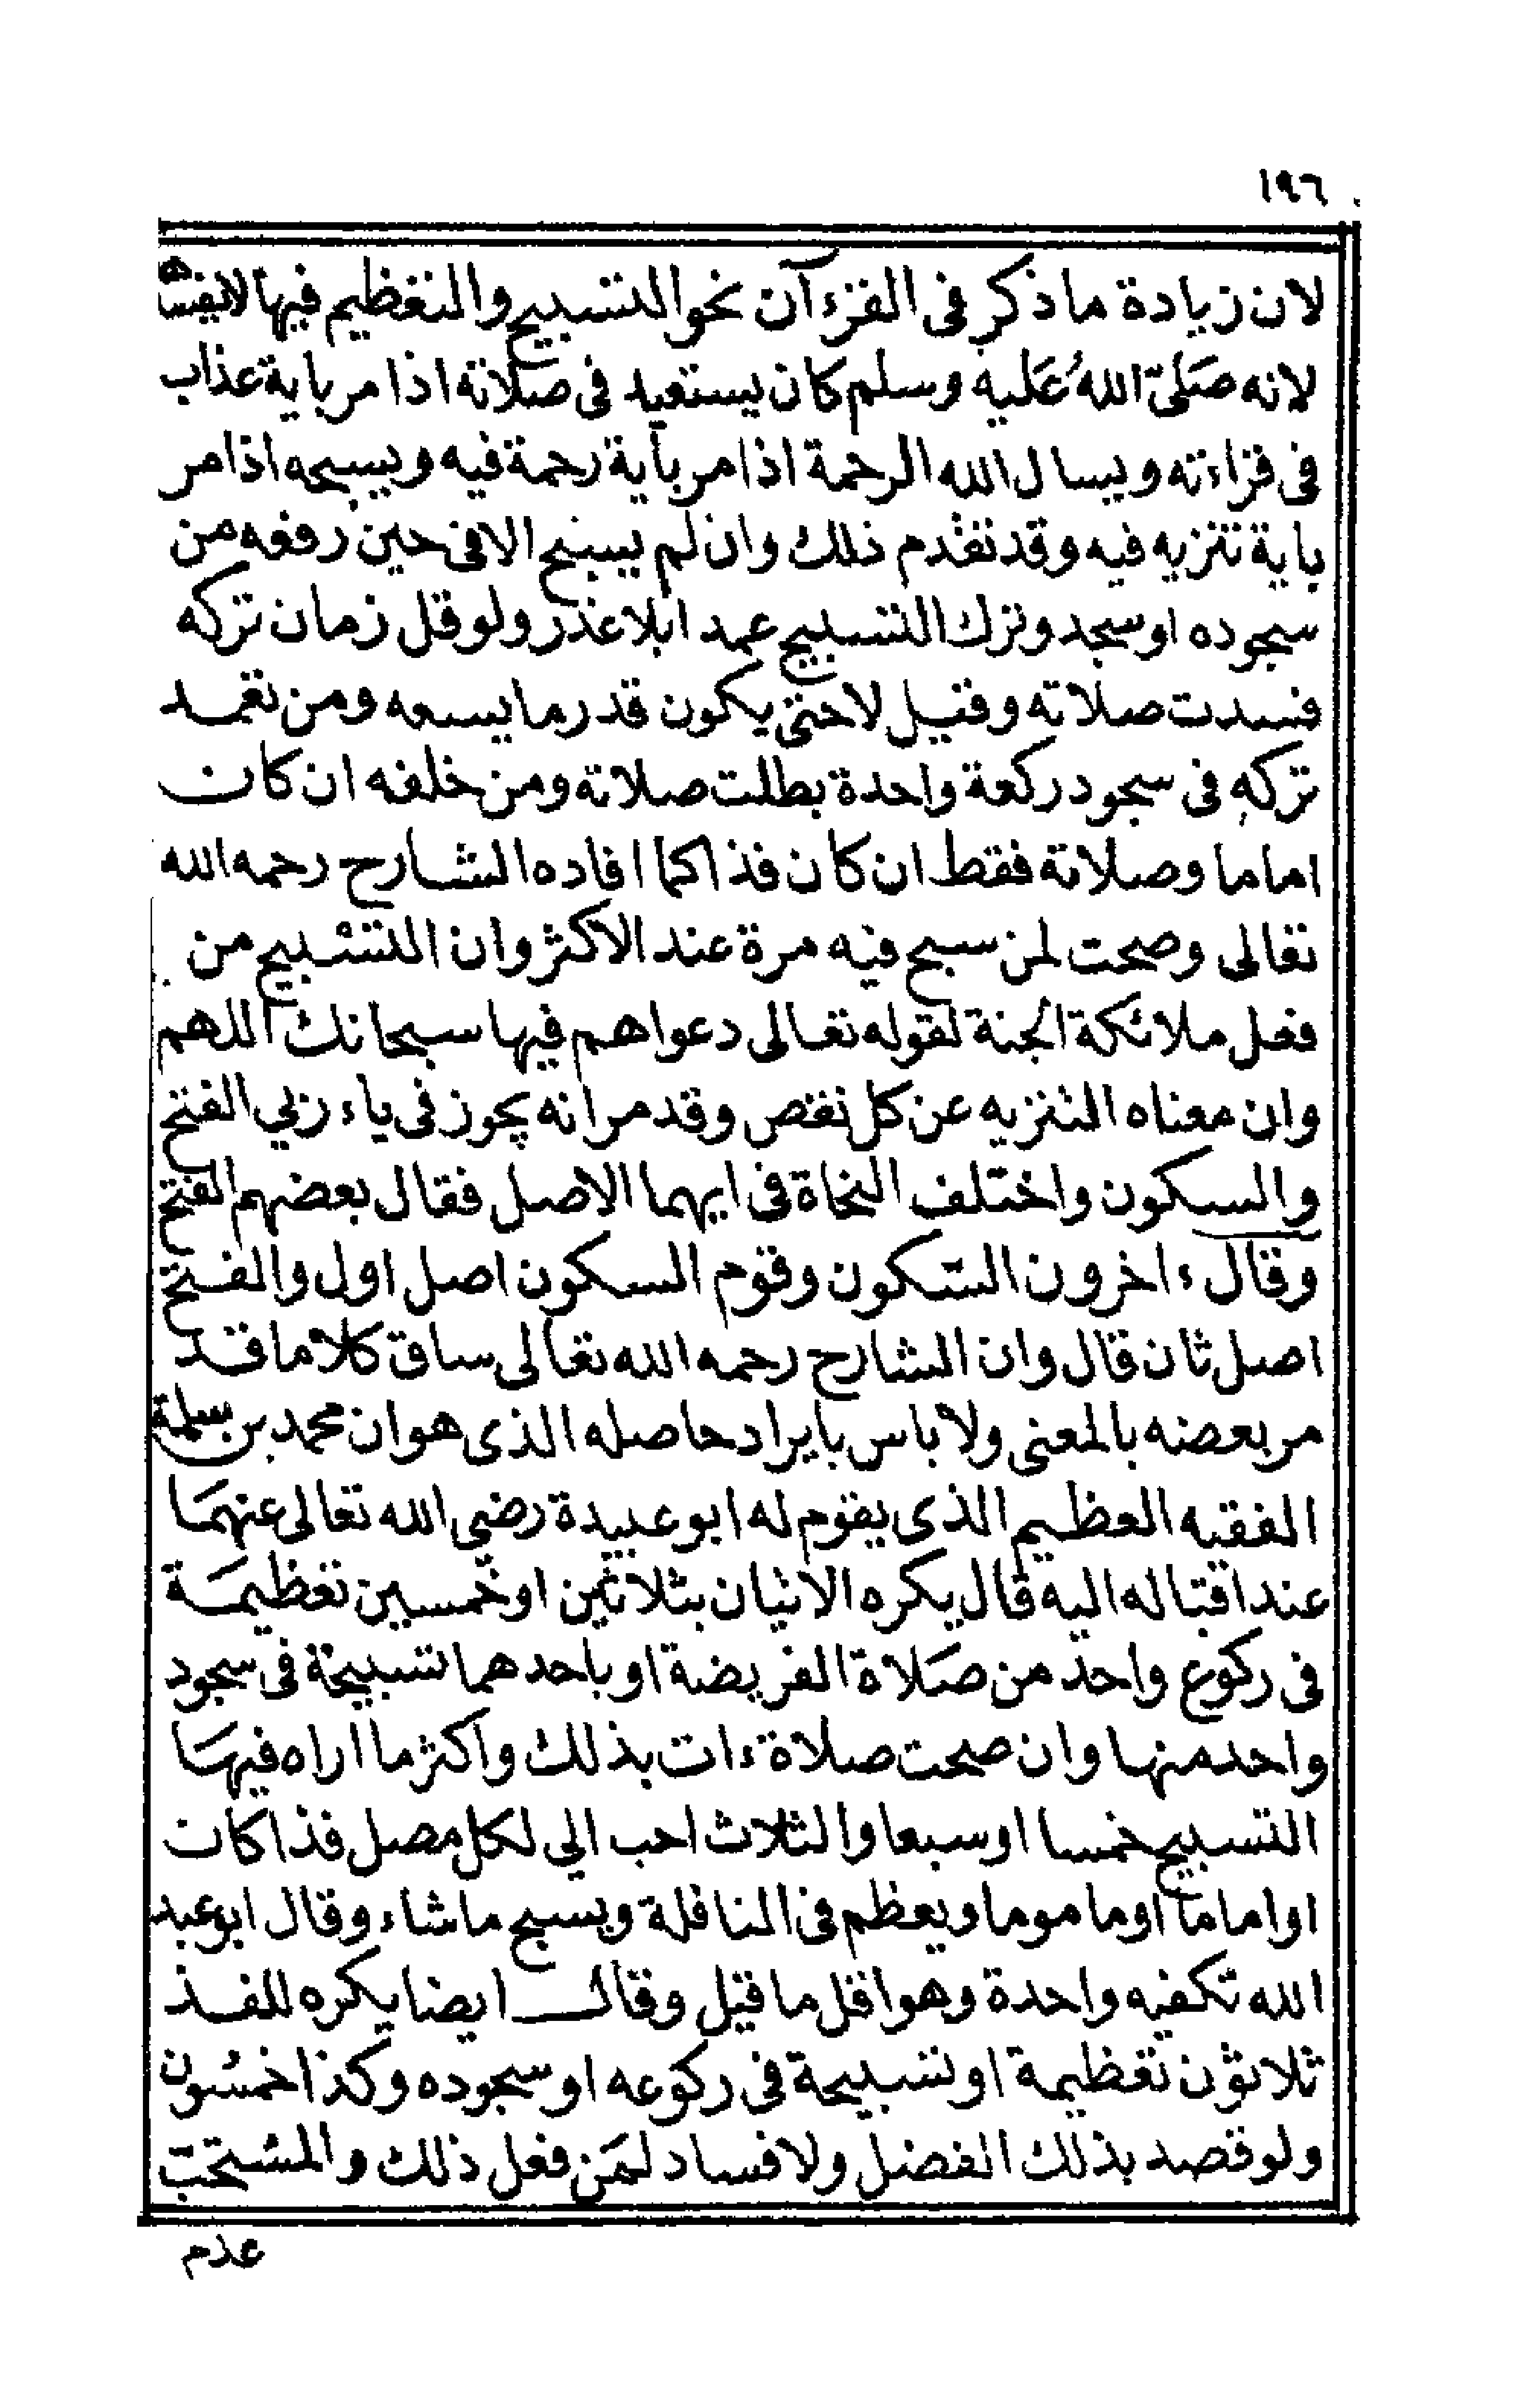 ١٩٦
لان زيادة ما ذكر فى القرءآن نحو التسبيح والتعظيم فيها لا يفسدها
لانه صَلىّ اللهُ عَليه وسلم كان يستعيد فى صلاته اذا مر باية عذاب
فى قراءته ويسال الله الرحمة اذا مر باية رحمة فيه ويسبحه اذا مر
باية تنزيه فيه وقد تقدم ذلك وان لم يسبح الا فى حين رفعه من
سجوده او سجد وترك التسبيح عمدا بلا عذر ولو قل زمان تركه
فسدت صلاته وقيل لا حتى يكون قدر ما يسعه ومن تعمد
تركه فى سجود ركعة واحدة بطلت صلاته ومن خلفه ان كان
اماما وصلاته فقط ان كان فذا كما افاده الشارح رحمه الله
تعالى وصحت لمن سبح فيه مرة عند الاكثر وان التسبيح من
فعل ملائكة الجنة لقوله تعالى دعواهم فيها سبحانك اللهم
وان معناه التنزيه عن كل نقص وقد مر انه يجوز فى ياء ربي الفتح
والسكون واختلف النحاة فى ايهما الاصل فقال بعضهم الفتح
وقال ءاخرون السّكون وقوم السكون اصل اول والفتح
اصل ثان قال وان الشارح رحمه الله تعالى ساق كلاما قد
مر بعضه بالمعنى ولا باس بايراد حاصله الذى هو ان محمد بن سلمة
الفقيه العظيم الذى يقوم له ابو عبيدة رضي الله تعالى عنهمَا
عند اقباله اليه قال يكره الاتيان بثلاثين او خمسين تعظيمَة
فى ركوع واحد من صَلاة الفريضة او باحدهما تسبيحة فى سجود
واحد منها وان صحت صلاة ءات بذلك واكثر ما اراه فيهَا
التسبيح خمسا او سبعا والثلاث احب الي لكل مصل فذا كان
او اماما او ماموما ويعظم فى النافلة ويسبح ما شاء وقال ابو عبد
الله تكفيه واحدة وهو اقل ما قيل وقال ايضا يكره للفذ
ثلاثون تعظيمة او تسبيحة فى ركوعه او سجوده وكذا خمسُون
ولو قصد بذلك الفضل ولا فساد لمَن فعل ذلك والمسْتحبّ
عدم